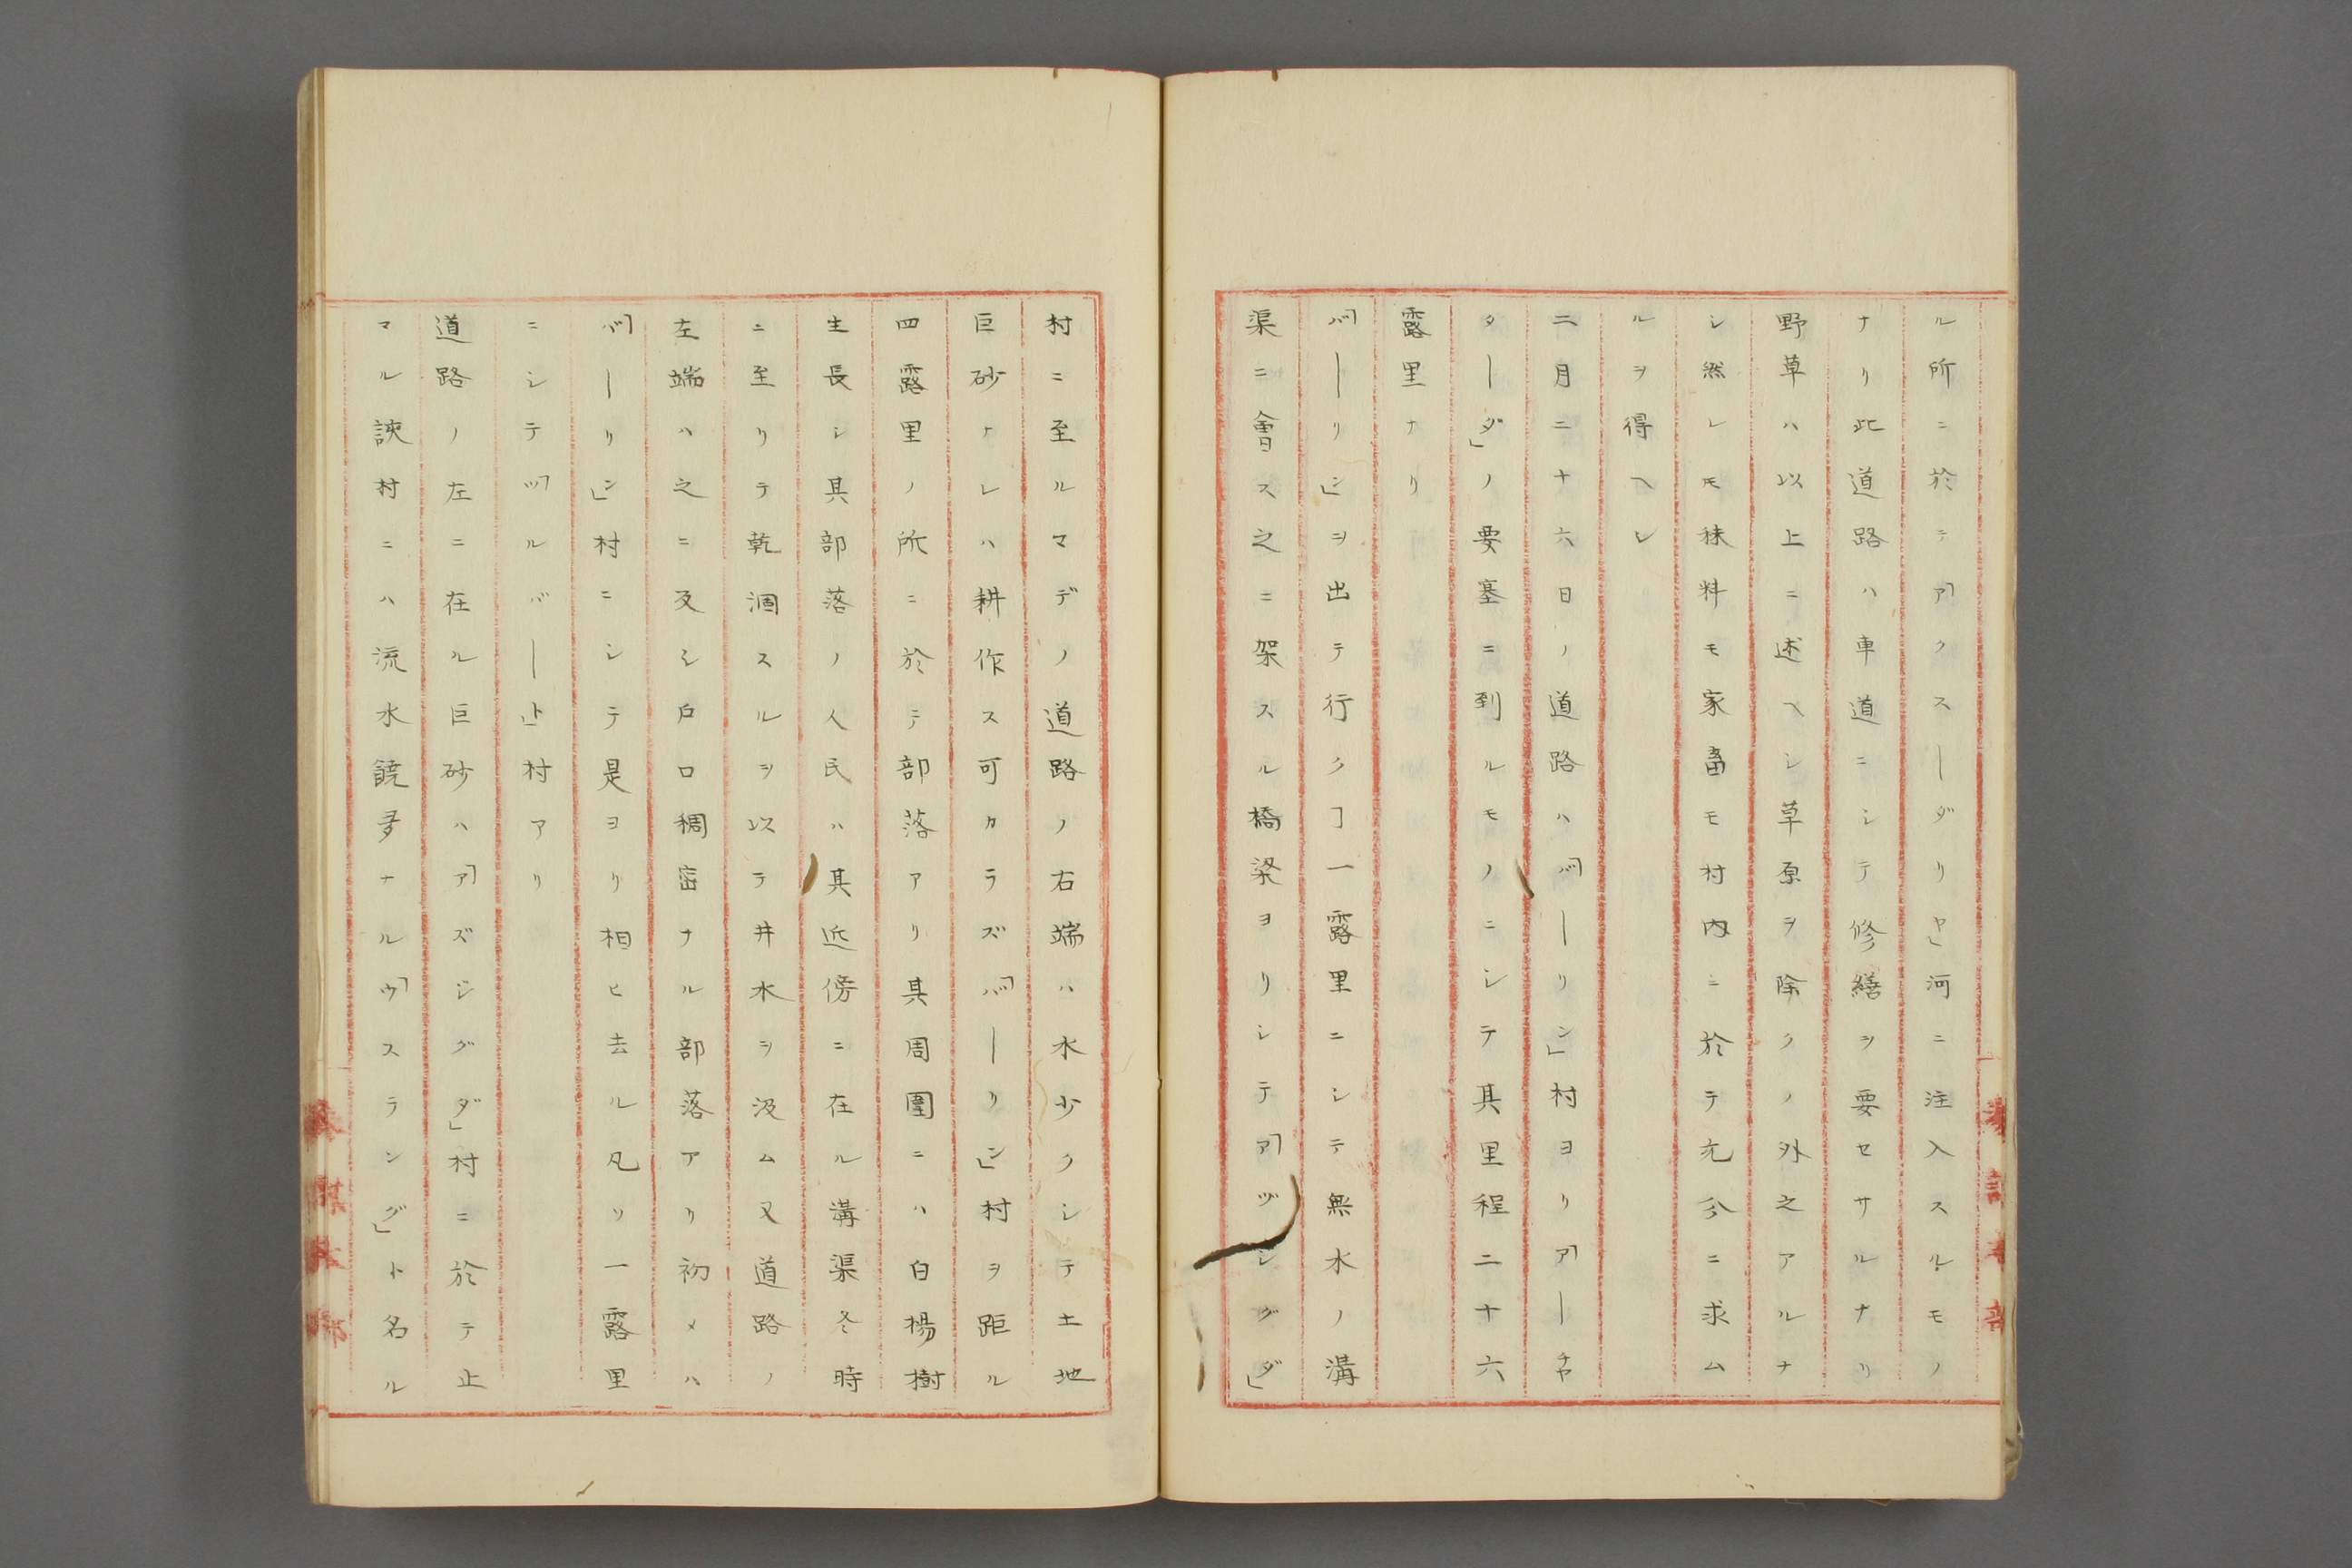 ル所ニ於テ「アクスーダリヤ」河ニ注入スルモノ
ナリ此道路ハ車道ニシテ修繕ヲ要セサルナリ
野草ハ以上ニ述ヘシ草原ヲ除クノ外之アルナ
シ然レモ秣料モ家畜モ村内ニ於テ充分ニ求ム
ルヲ得ヘレ
二月二十六日ノ道路ハ「バーリン」村ヨリ「アーチャ
ターダ」ノ要塞ニ到ルモノニシテ其里程二十六
露里ナリ
「バーリン」ヲ出テ行クヿ一露里ニシテ無水ノ溝
渠ニ會ス之ニ架スル橋梁ヨリシテ「アヅシグダ」
村ニ至ルマデノ道路ノ右端ハ水少クシテ土地
巨砂ナレハ耕作ス可カラズ「バーリン」村ヲ距ル
四露里ノ所ニ於テ部落アリ其周圍ニハ白楊樹
生長シ其部落ノ人民ハ其近傍ニ在ル溝渠冬時
ニ至リテ乾涸スルヲ以テ井水ヲ汲ム又道路ノ
左端ハ之ニ反シ戸口稠密ナル部落アリ初メハ
「バーリン」村ニシテ是ヨリ相ヒ去ル凡ソ一露里
ニシテ「ツルバート」村アリ
道路ノ左ニ在ル巨砂ハ「アズシグダ」村ニ於テ止
マル該村ニハ流水饒多ナル「ウスラング」ト名ル
參謀本部
參謀本部